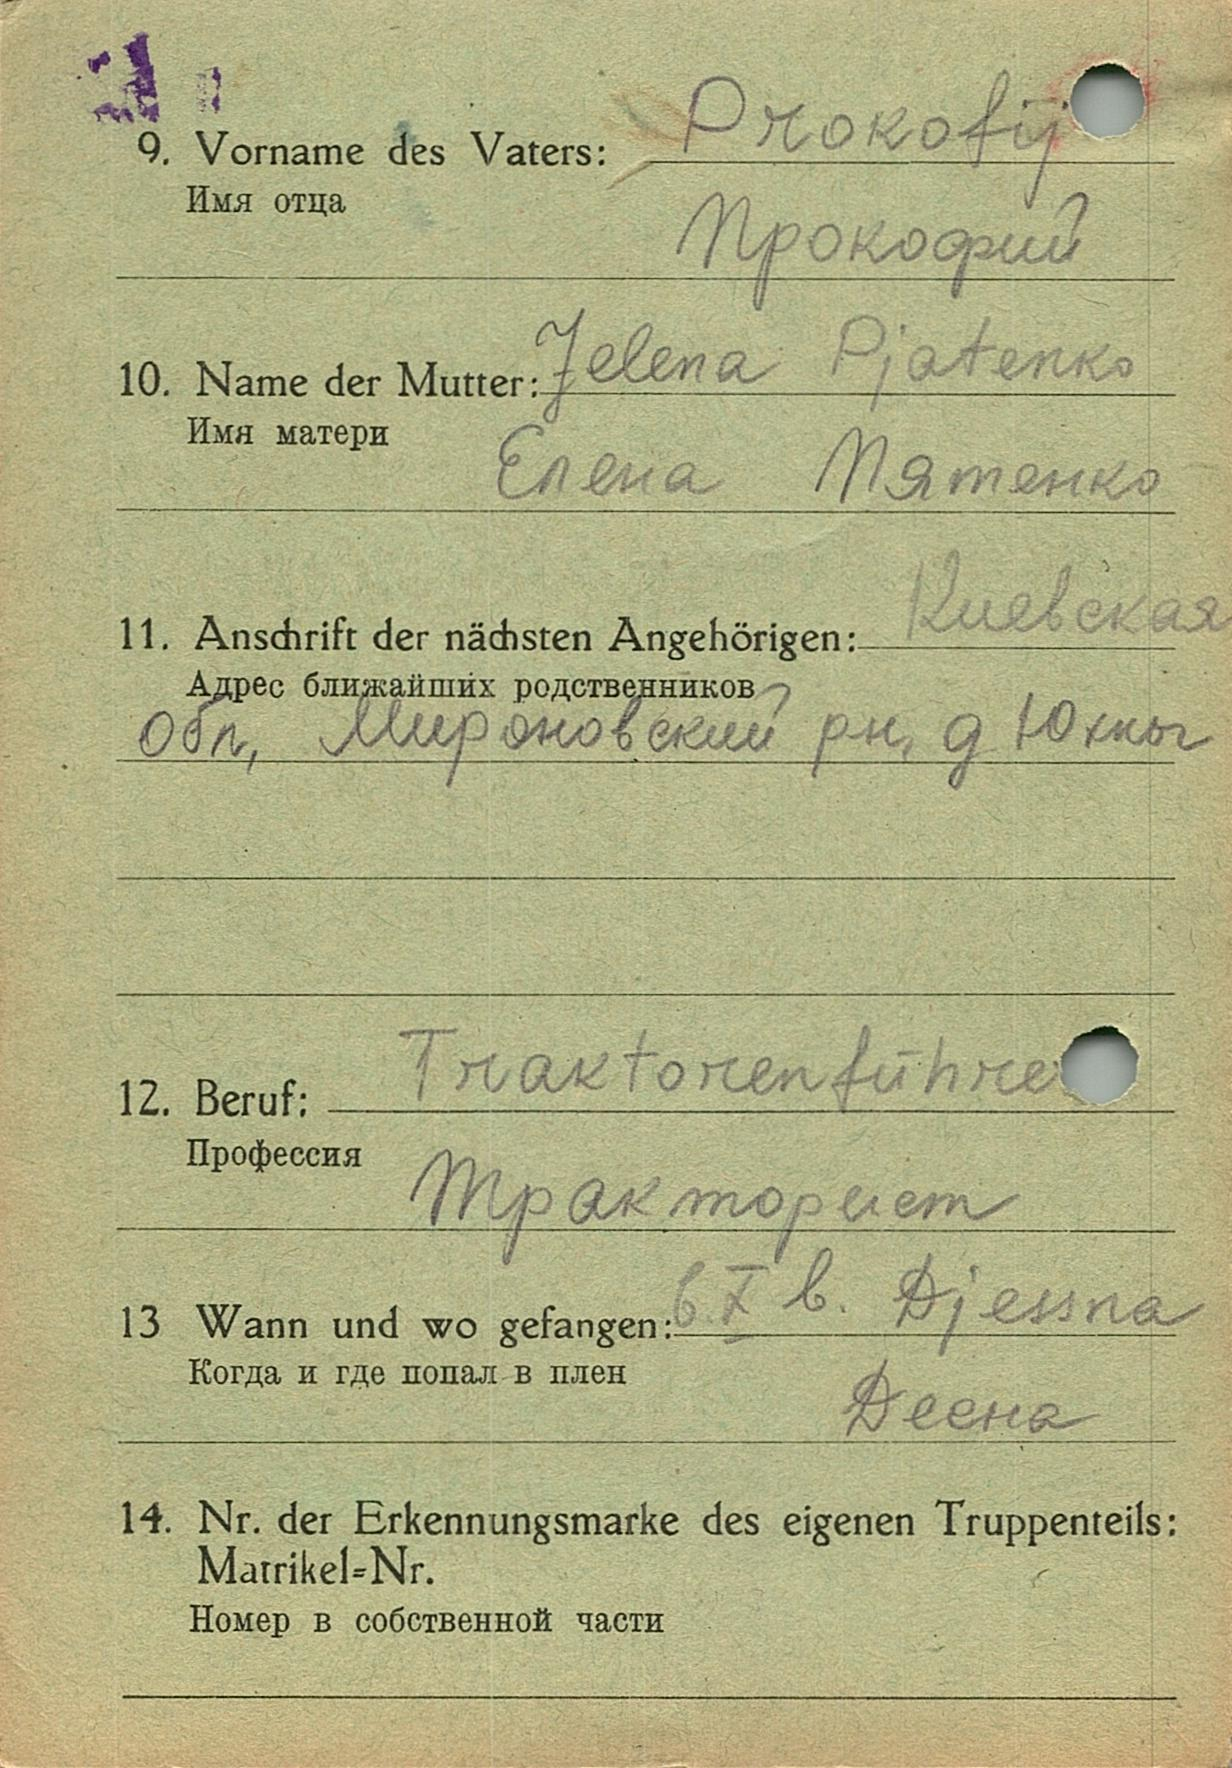 9. Vorname des Vaters: Prokofij
Имя отца
Прокофий
10. Name der Mutter: Jelena Pjatenko
Имя матери
Елена Пятенко
11. Anschrift der nächsten Angehörigen: Киевская
Адрес ближайших родственников
обл, Мироновский рн, д Юхны
12. Beruf: Traktorenführe
Профессия
Тракторист
13 Wann und wo gefangen: 6.X b. Djessna
Когда и где попал в плен
Десна
14. Nr. der Erkennungsmarke des eigenen Truppenteils:
Matrikel=Nr.
Номер в собственной части